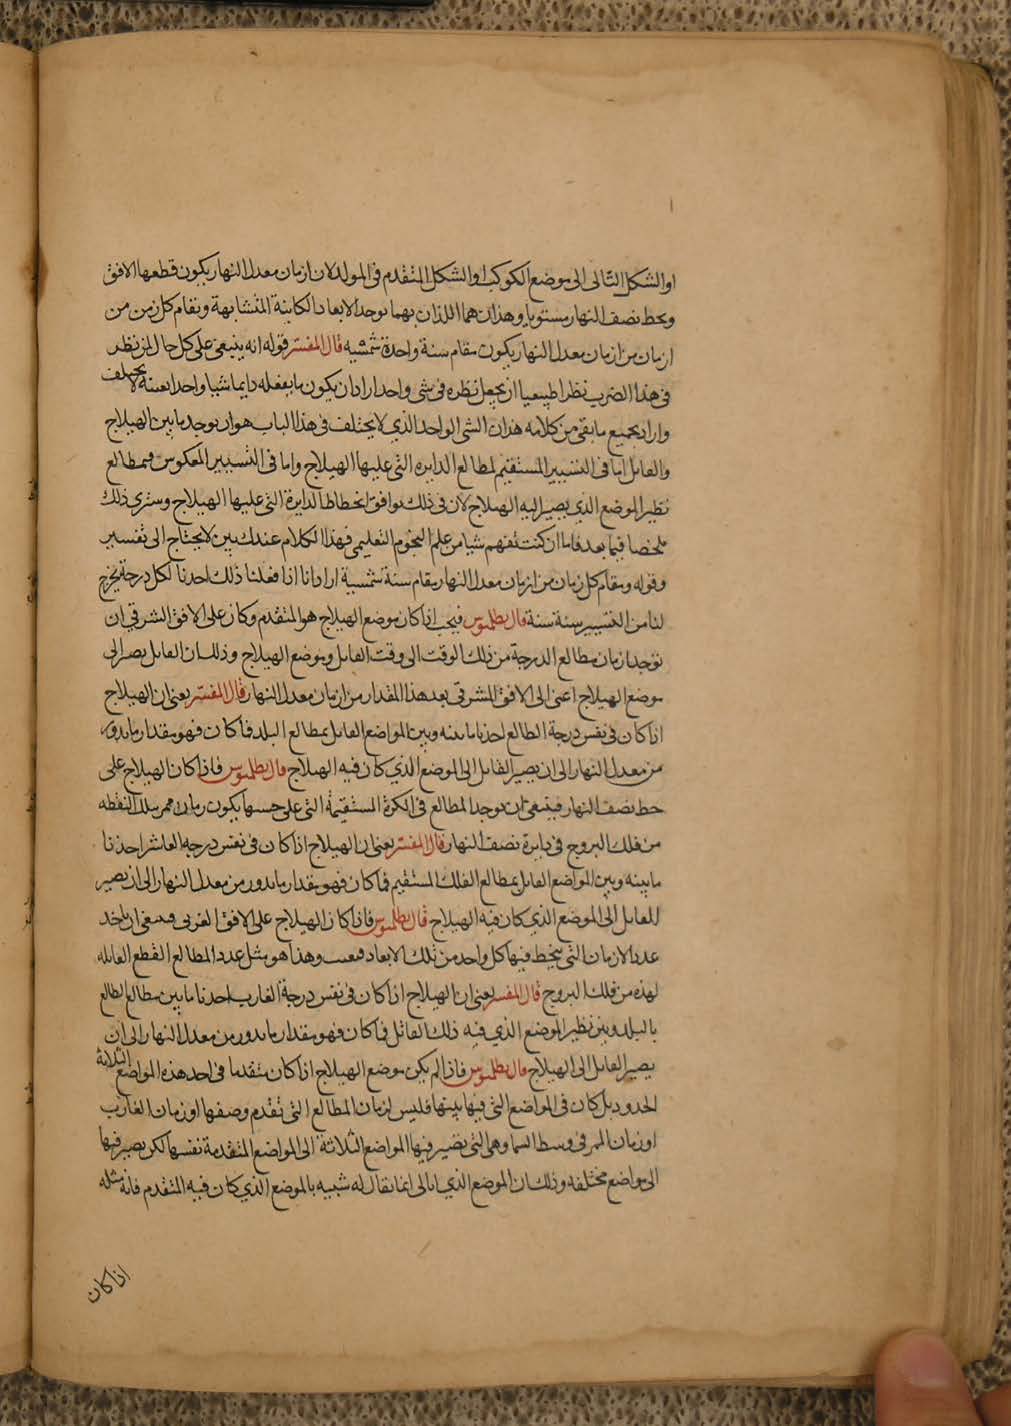 او الشكل التالى الى موضع الكوكب او الشكل المتقدم فى المولد لان ازمان معدل النهار يكون قطعها الافق
وبخط نصف النهار مستويا وهذان هما اللذان بهما توجد الابعاد الكاينة المتشابهة وتقام كل زمن من
ازمان من ازمان معدل النهار يكون مقام سنة واحدة شمسيه قال المفسر قوله انه ينبغى على كل حال لمن نظر
فى هذا الضرب نظرا طبيعيا ان يجعل نظره فى شى واحد اراد ان يكون ما يفعله دايما شيا واحدا بعينه لا يختلف
واراد بجميع ما بقى من كلامه هذا ان الشى الواحد الذي لا يختلف فى هذا الباب هو ان يوجد ما بين الهيلاج
والقاتل اما فى التسيير المستقيم لمطالع الدايره التى عليها الهيلاج واما فى التسيير المعكوس فبمطالع
نظير الموضع الذي يصير اليه الهيلاج لان فى ذلك توافق انحطاط الدايرة التى عليها الهيلاج وسترى ذلك
ملخصا فيما بعد فاما ان كنت تفهم شيا من علم النجوم التعليمى فهذا الكلام عندك بين لا يحتاج الى تفسير
وقوله ومقام كل زمان من ازمان معدل النهار مقام سنة شمسية اراد انا اذا فعلنا ذلك اخذنا لكل درجة يخرج
لنا من التسيير سنة سنة قال بطلميوس فيجب اذا كان موضع الهيلاج هو المتقدم وكان على الافق الشرقي ان
توجد ازمان مطالع الدرجة من ذلك الوقت الى وقت القاتل وموضع الهيلاج وذلك ان القاتل يصير الى
موضع الهيلاج اعنى الى الافق المشرقى بعد هذا المقدار من ازمان معدل النهار قال المفسر يعنى ان الهيلاج
اذا كان فى نفس درجة الطالع اخذنا ما بينه وبين المواضع القاتل بمطالع البلد فما كان فهو مقدار ما يدور
من معدل النهار الى ان يصير القاتل الى الموضع الذي كان فيه الهيلاج قال بطلميوس فاذا كان الهيلاج على
خط نصف النهار فينبغى ان توجد المطالع فى الكرة المستقيمة التى على حسبها يكون زمان ممر تلك النقطه
من فلك البروج فى دايرة نصف النهار قال المفسر يعنى ان الهيلاج اذا كان فى نفس درجه العاشر اخذنا
ما بينه وبين المواضع القاتل بمطالع الفلك المستقيم فما كان فهو مقدار ما يدور من معدل النهار الى ان يصير
القاتل الى الموضع الذي كان فيه الهيلاج قال بطلميوس فاذا كان الهيلاج على الافق الغربى فينبغى ان ناخد
عدد الازمان التى ينحط فيها كل واحد من تلك الابعاد فيغيب وهذا هو مثل عدد المطالع القطع القابله
لهذه من فلك البروج قال المفسر يعنى ان الهيلاج اذا كان فى نفس درجة الغارب اخذنا ما بين مطالع الطالع
بالبلد وبين نظير الموضع الذي فيه ذلك القاتل فما كان فهو مقدار ما يدور من معدل النهار الى ان
يصير القاتل الى الهيلاج قال بطلميوس فاذا لم يكن موضع الهيلاج اذا كان متقدما فى احد هذه المواضع الثلاثة
الحدود بل كان فى المواضع التى فيما بينها فليس ازمان المطالع التى تقدم وصفها او زمان الغارب
او زمان الممر فى وسط السما وهى التى تصير فيها المواضع الثلاثة الى المواضع المتقدمة نفسها لكن يصير فيها
الى مواضع مختلفه وذلك ان الموضع الذي انما يقال له شبيه بالموضع الذي كان فيه المتقدم فانه مثله
اذا كان